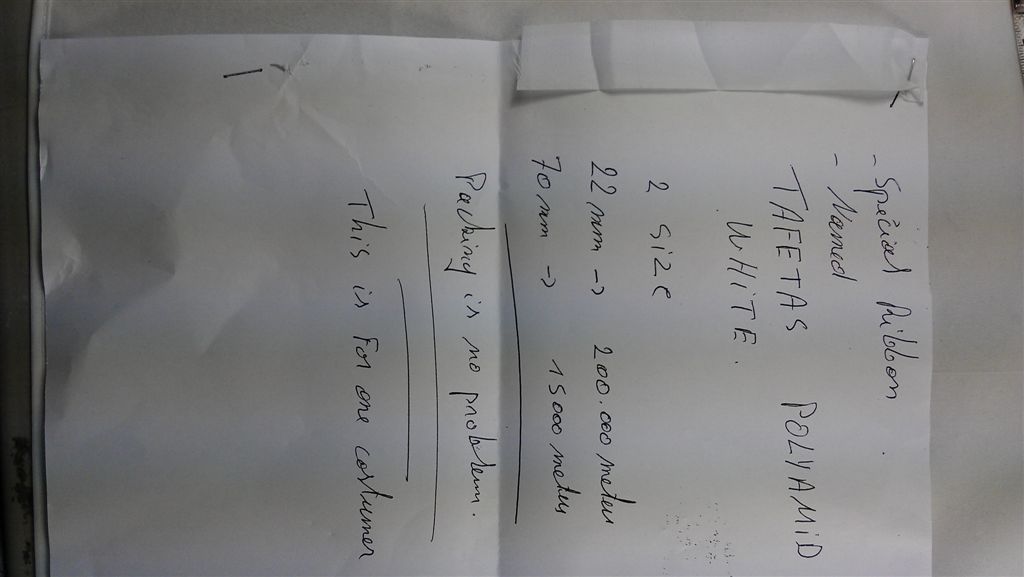 - Spécial Ribbon.
- Named
TAFETAS POLYAMiD
WHiTE.
2 Size
22 mm -> 200.000 meters
70 mm -> 15000 meters
Packing is no problem.
This is For one costumer